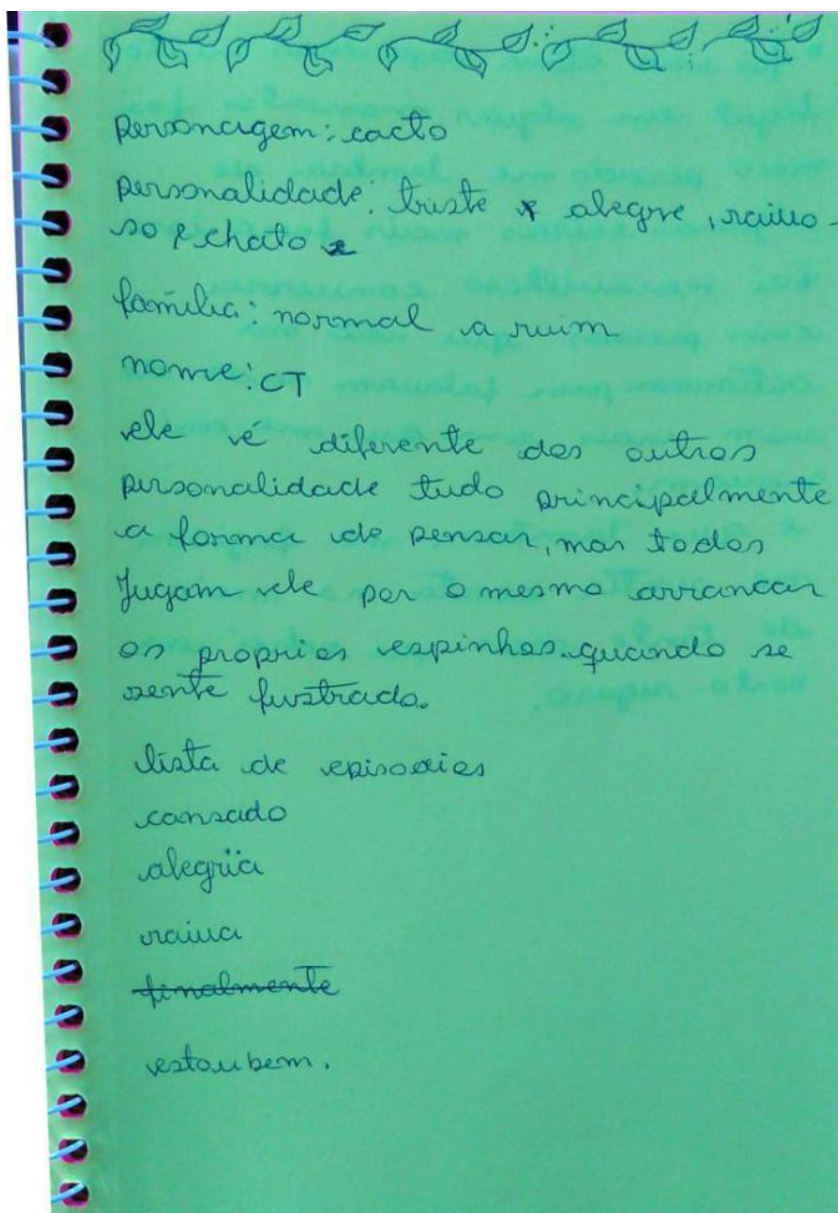 personagem: cacto
personalidade: triste e alegre, raivo-
so e chato
família: normal a ruim
nome: CT
ele é diferente dos outros
personalidade tudo principalmente
a forma de pensar, mas todos
Jugam ele por o mesmo arrancar
os proprios espinhos. quando se
sente fustrado.
lista de episodios
cansado
alegria
raiva
finalmente
estou bem.